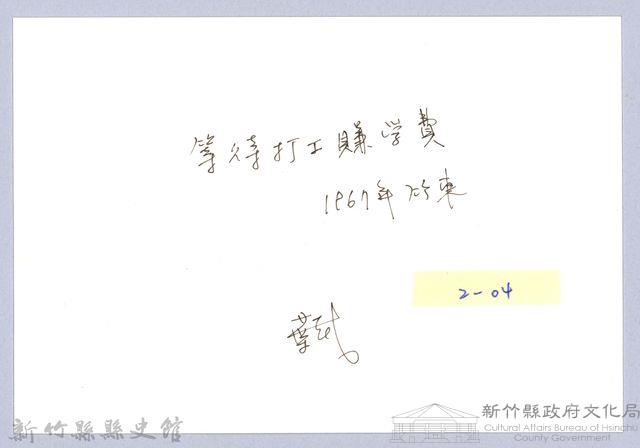 等待打工賺学費
1967年 竹東
葉
2-04
新竹縣縣史館
新竹縣政府文化局
Cultural Affairs Bureau of Hsinchu
County Government